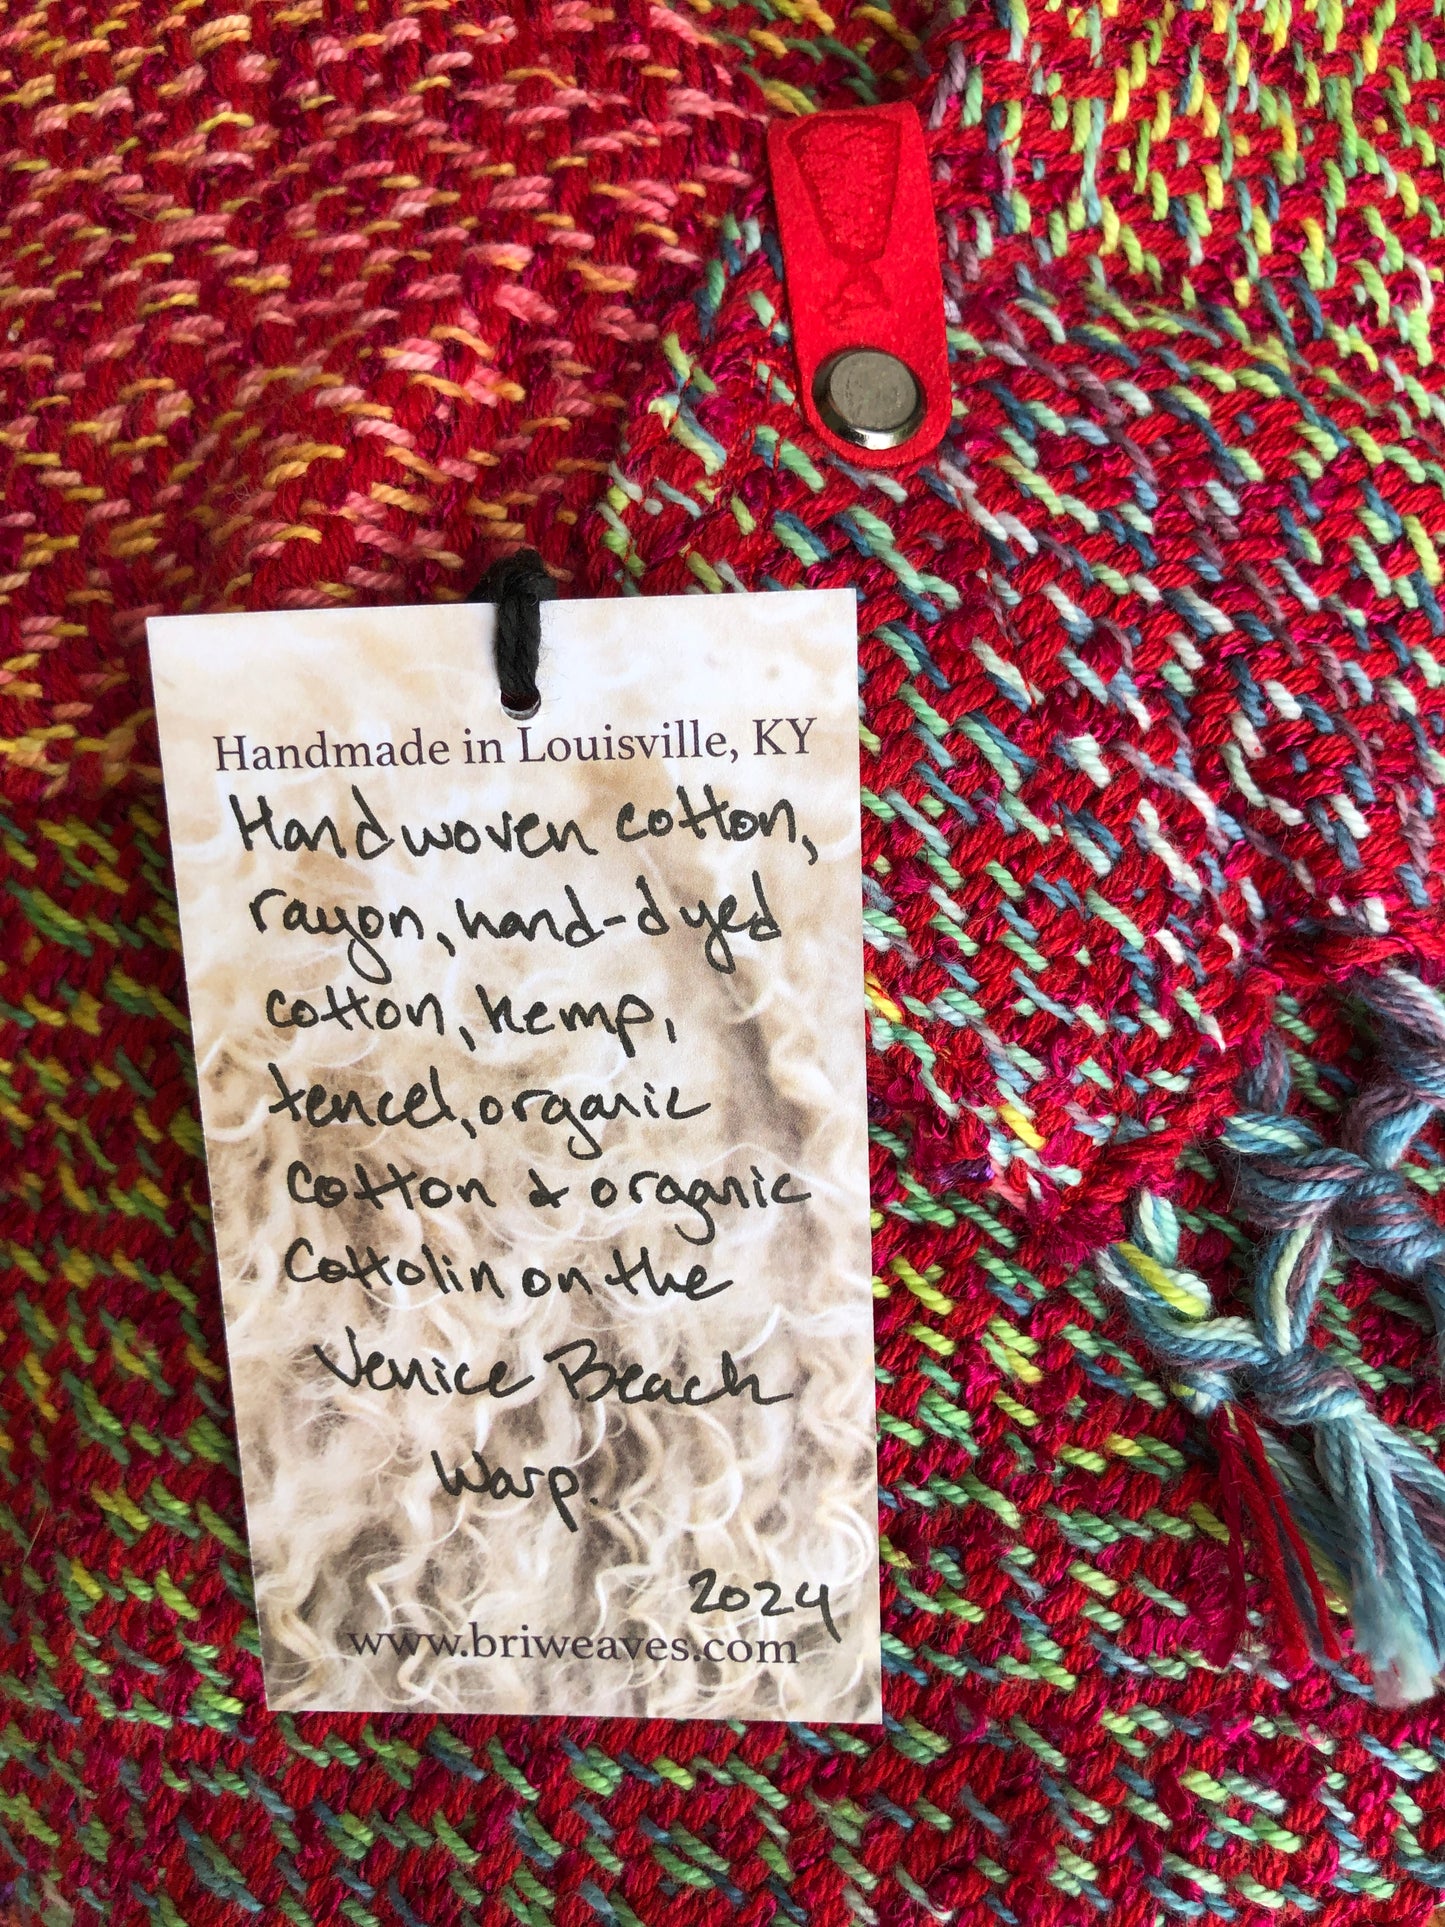 Handmade in Louisville, KY
Handwoven cotton,
rayon, hand-dyed
cotton, hemp,
tencel, organic
cotton & organic
Cottolin on the
Venice Beach
Warp.
2024
www.briweaves.com